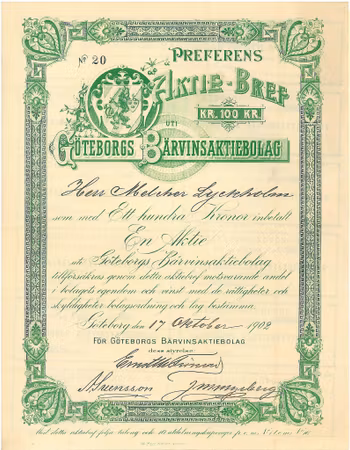 No 20
PREFERENS
AKTIE-BREF
KR. 100 KR.
uti
GÖTEBORGS BÄRVINSAKTIEBOLAG
Herr Melcher Lyckholm
som med Ett hundra Kronor inbetalt
En Aktie
uti Göteborgs Bärvinsaktiebolag
tillförsäkras genom detta aktiebref motsvarande andel
i bolagets egendom och vinst med de rättigheter och
skyldigheter bolagsordning och lag bestämma.
Göteborg den 17 Oktober 1902
FÖR GÖTEBORGS BÄRVINSAKTIEBOLAG
dess styrelse:
Med detta aktiebref följa talong och 10 utdelningskuponger